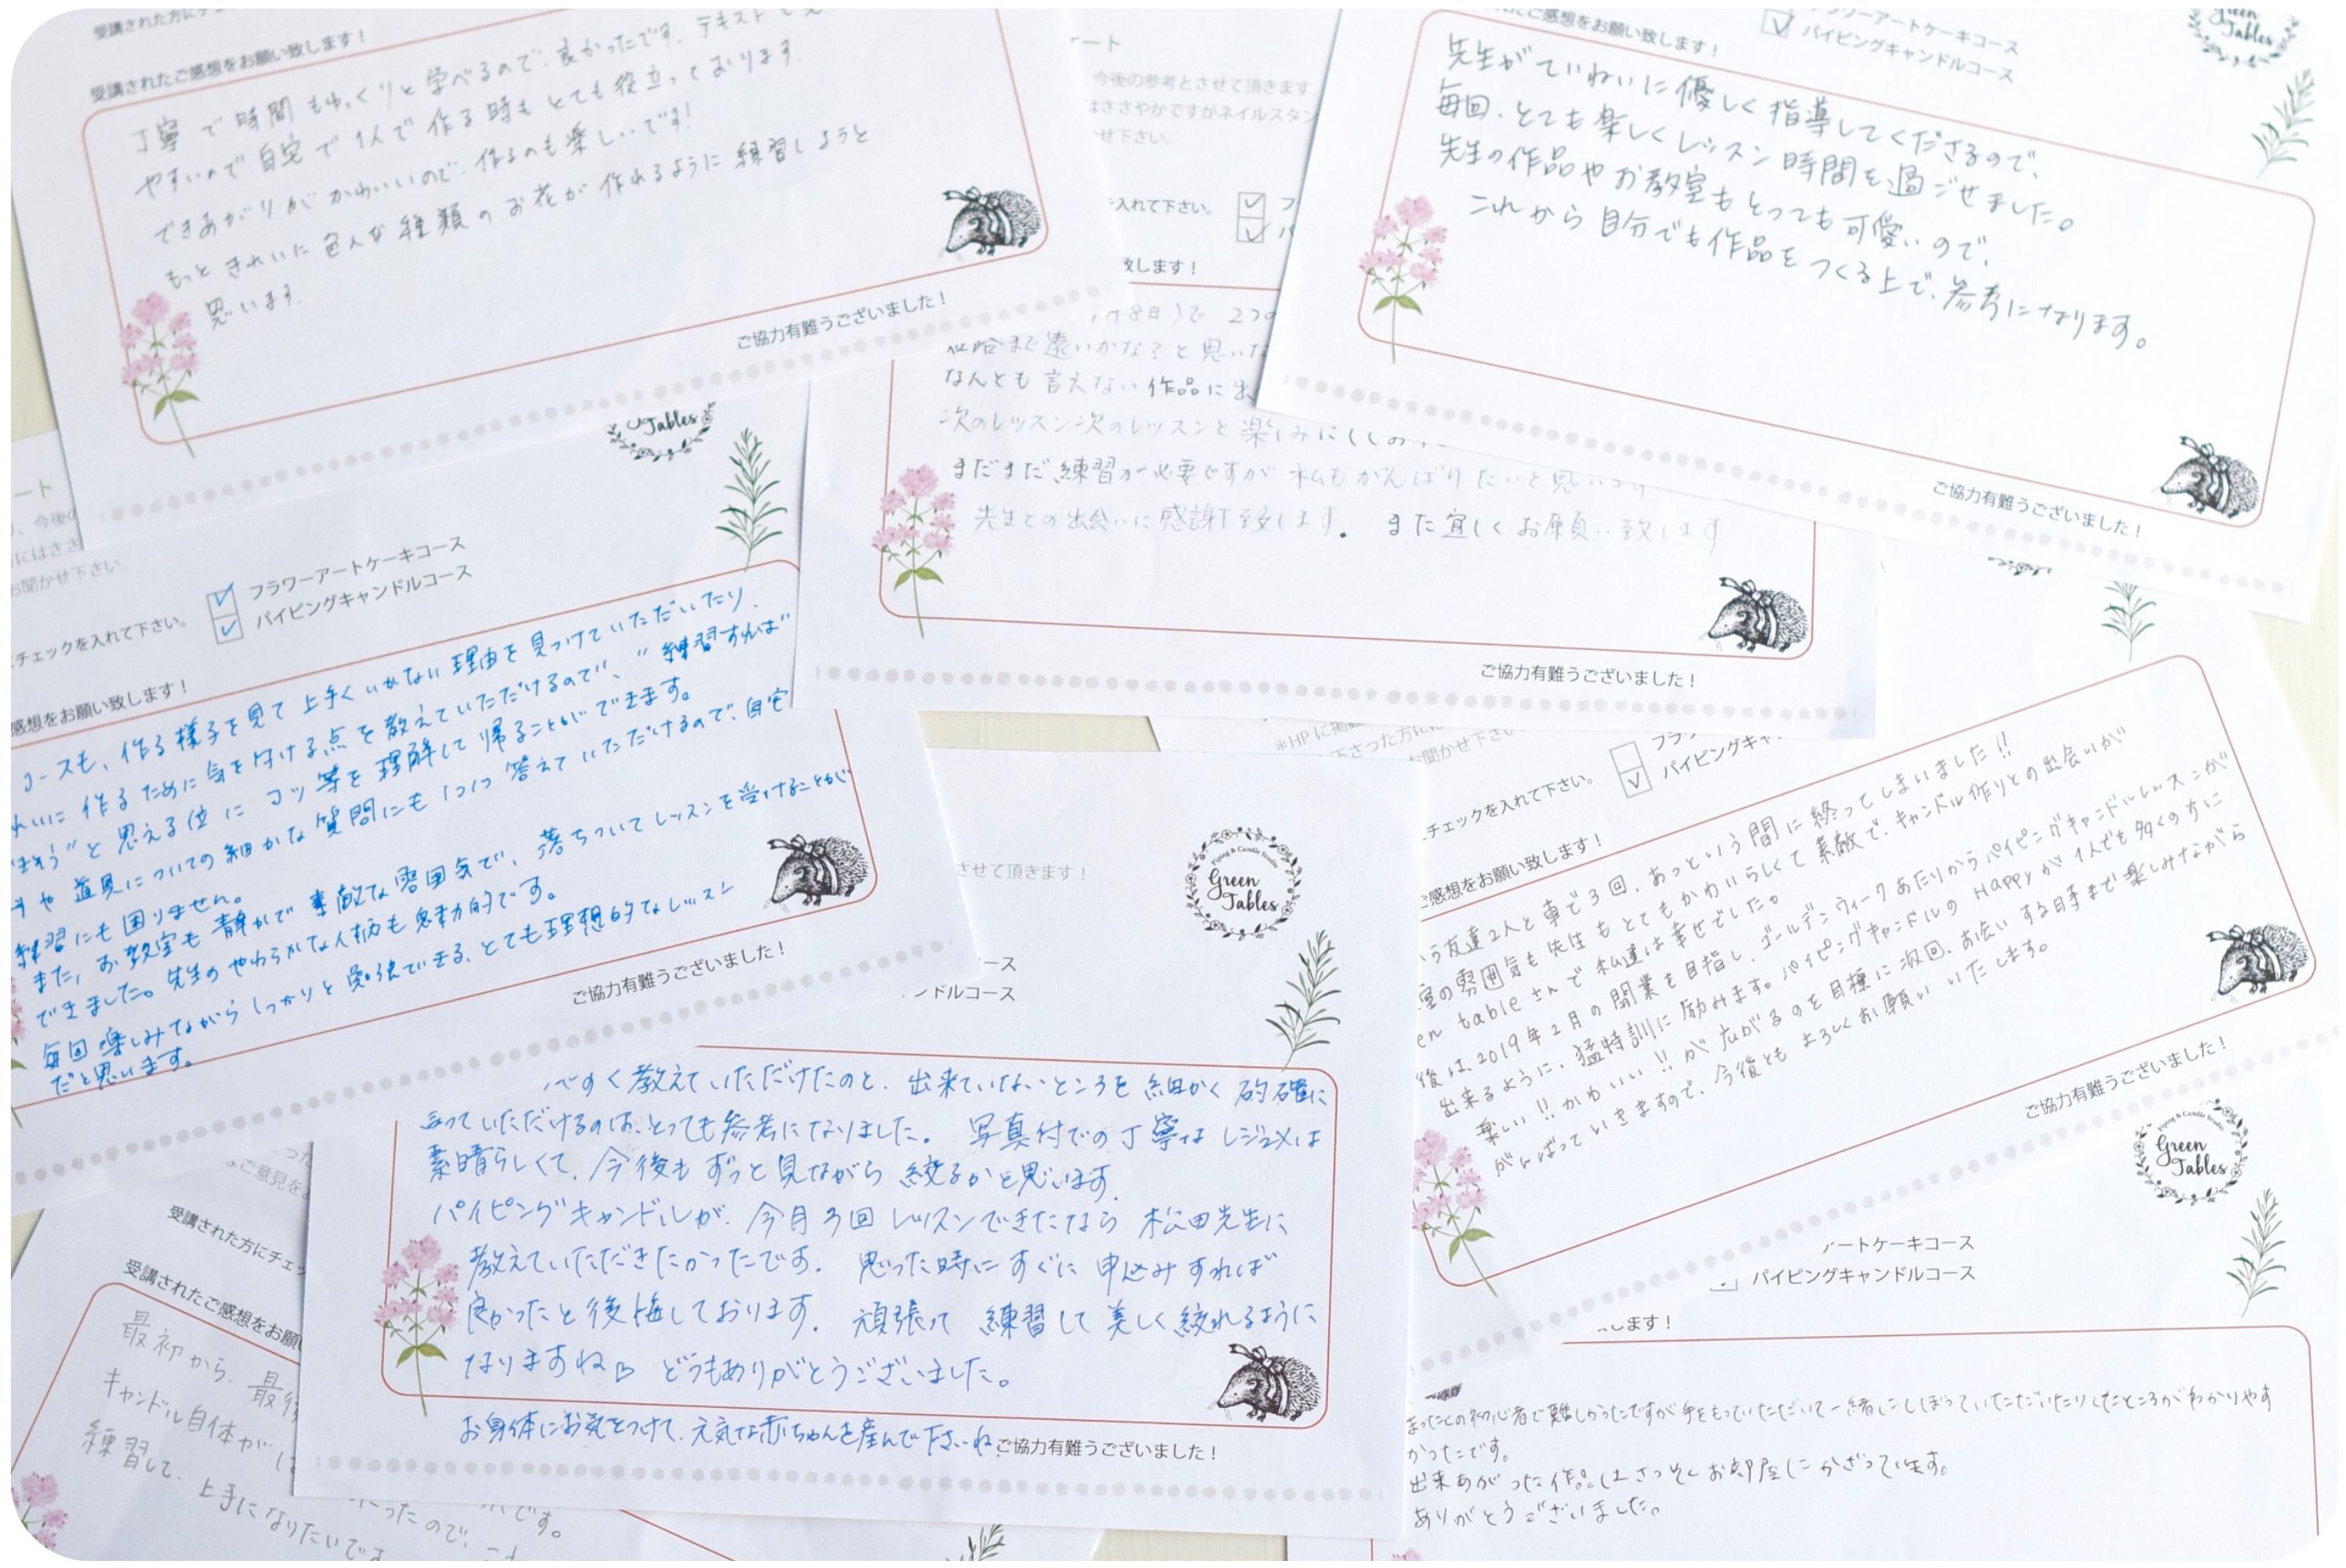 受講されたご感想をお願い致します！
丁寧で時間もゆっくりと学べるので、良かったです。テキストも
やすいので自宅で1人で作る時もとても役立っております。
できあがりがかわいいので、作るのも楽しいです！
もっときれいに色んな種類のお花が作れるように練習しようと
思います。
ご協力有難うございました！
今後の参考とさせて頂きます
はささやかですがネイルスタン
せ下さい。
を入れて下さい。
致します！
で 2つの
まで遠いかな？と思いな
なんとも言えない作品に出
次のレッスン次のレッスンと楽しみに
まだまだ練習が必要ですが私もがんばりたいと思います
先生との出会いに感謝致します。また宜しくお願い致します
ご協力有難うございました！
Green
Tables
パイピングキャンドルコース
ご感想をお願い致します！
先生がていねいに優しく指導してくださるので、
毎回、とても楽しくレッスン時間を過ごせました。
先生の作品やお教室もとっても可愛いので、
これから自分でも作品をつくる上で、参考になります。
ご協力有難うございました！
Tables
フラワーアートケーキコース
パイピングキャンドルコース
チェックを入れて下さい。
感想をお願い致します！
コースも、作る様子を見て上手くいかない理由を見つけていただいたり、
れいに作るために気を付ける点を教えていただけるので、"練習すれば
できそう"と思える位にコツ等を理解して帰ることができます。
や道具についての細かな質問にも1つ1つ答えていただけるので、自宅
練習にも困りません。
また、お教室も静かで素敵な雰囲気で、落ちついてレッスンを受けることが
できました。先生のやわらかな人柄も魅力的です。
毎回楽しみながらしっかりと勉強できる、とても理想的なレッスン
だと思います。
ご協力有難うございました！
*HPに掲載
下さった方には
お聞かせ下さい
チェックを入れて下さい。
パイピングキャ
ご感想をお願い致します！
う友達2人と車で3回、あっという間に終ってしまいました!!
室の雰囲気も先生もとてもかわいらしくて素敵で、キャンドル作りとの出会いが
en tableさんで私達は幸せでした。
後は、2019年2月の開業を目指し、ゴールデンウィークあたりからパイピングキャンドルレッスンが
出来るように、猛特訓に励みます。パイピングキャンドルのHappyが1人でも多くの方に
楽しい!!かわいい!!が広がるのを目標に次回、お会いする日まで楽しみながら
がんばっていきますので、今後ともよろしくお願いいたします。
ご協力有難うございました！
させて頂きます！
Piping & Candle Studio
Green
Tables
ース
ンドルコース
やすく教えていただけたのと、出来ていないところを細かく的確に
言っていただけるのは、とっても参考になりました。写真付での丁寧なレジュメは
素晴らしくて、今後もずっと見ながら絞るかと思います。
パイピングキャンドルが、今月3回レッスンできたなら松田先生に
教えていただきたかったです。思った時にすぐに申込みすれば
良かったと後悔しております。頑張って練習して美しく絞れるように
なりますね♡ どうもありがとうございました。
お身体にお気をつけて、元気な赤ちゃんを産んで下さいね。
ご協力有難うございました！
受講された方にチェッ
受講されたご感想をお願
最初から、最後
キャンドル自体が
練習して、上手になりたいです
Piping & Candle Studio
Green
Tables
ートケーキコース
パイピングキャンドルコース
します！
まったくの初心者で難しかったですが手をもっていただいて一緒にしぼっていただいたりしたところがわかりやす
かったです。
出来あがった作品はさっそくお部屋にかざっています。
ありがとうございました。